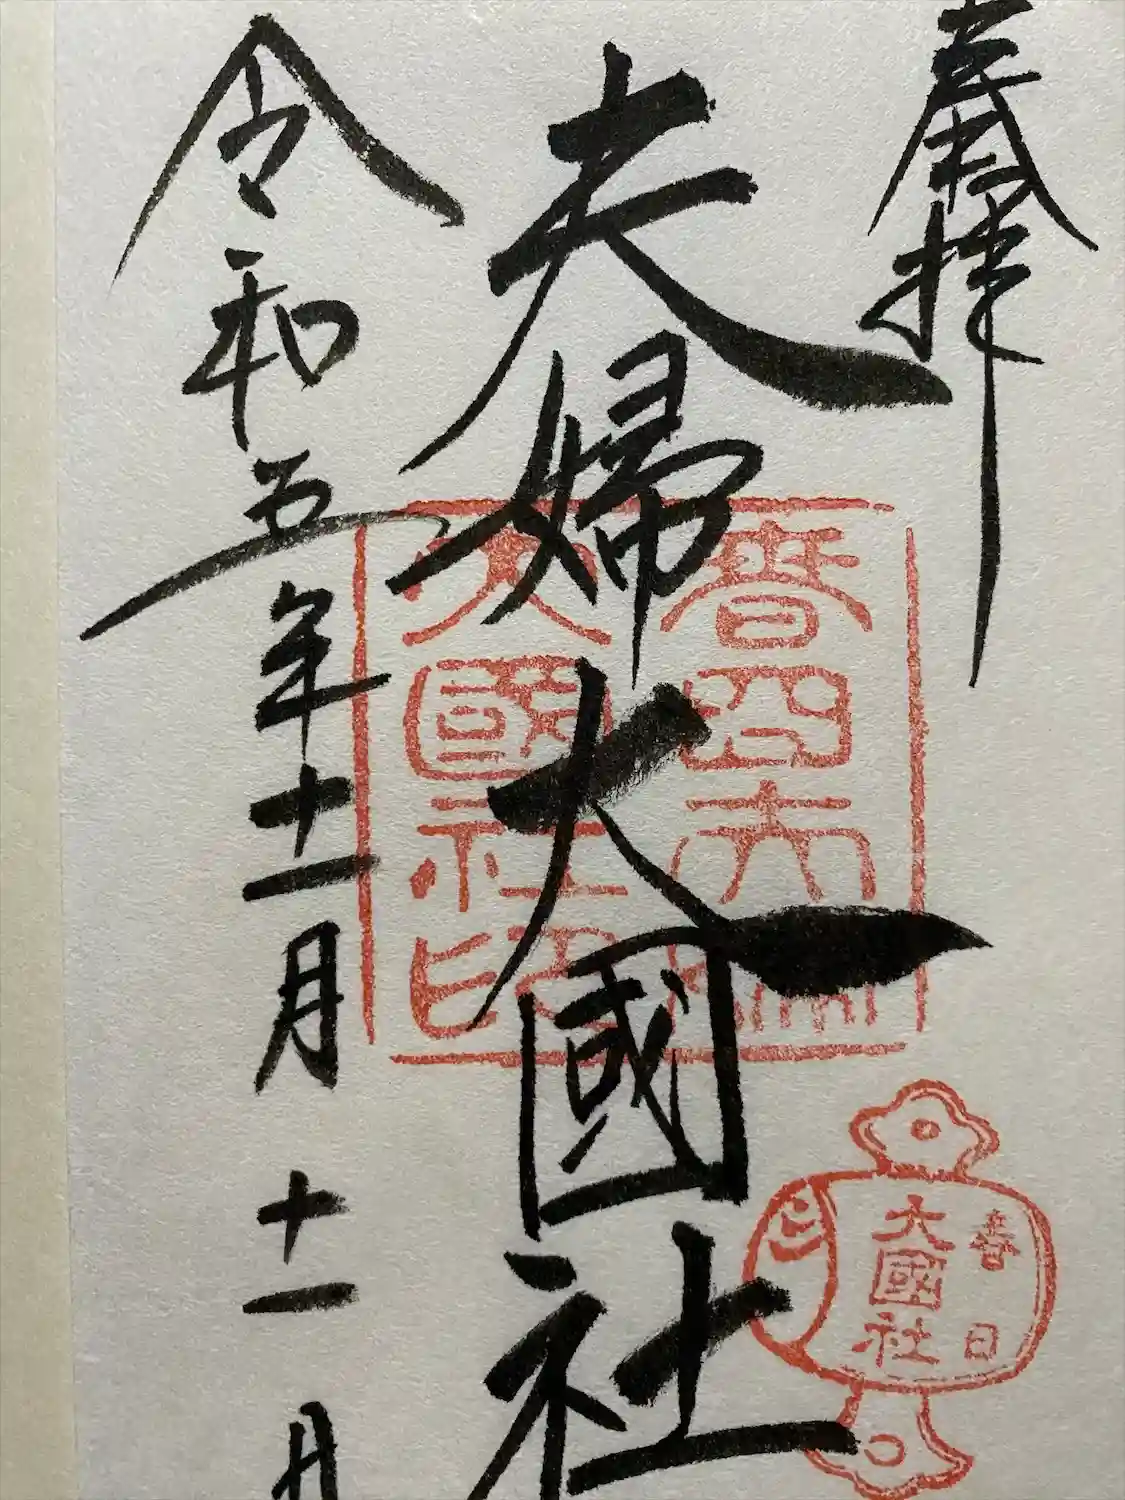 奉拝
夫婦大國社
令和五年十一月十一日
大國社印
春日
大國社